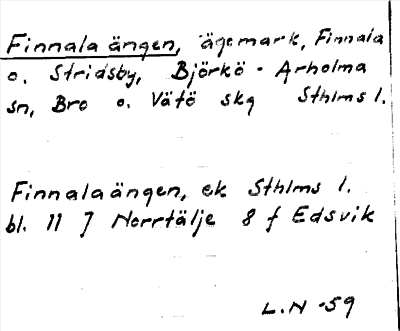 Finnala ängen, ägomark, Finnala
o. Stridsby, Björkö - Arholma
sn, Bro o. Vätö skg Sthlms l.
Finnalaängen, ek Sthlms l.
bl. 11 J Norrtälje 8 f Edsvik
L.N -59